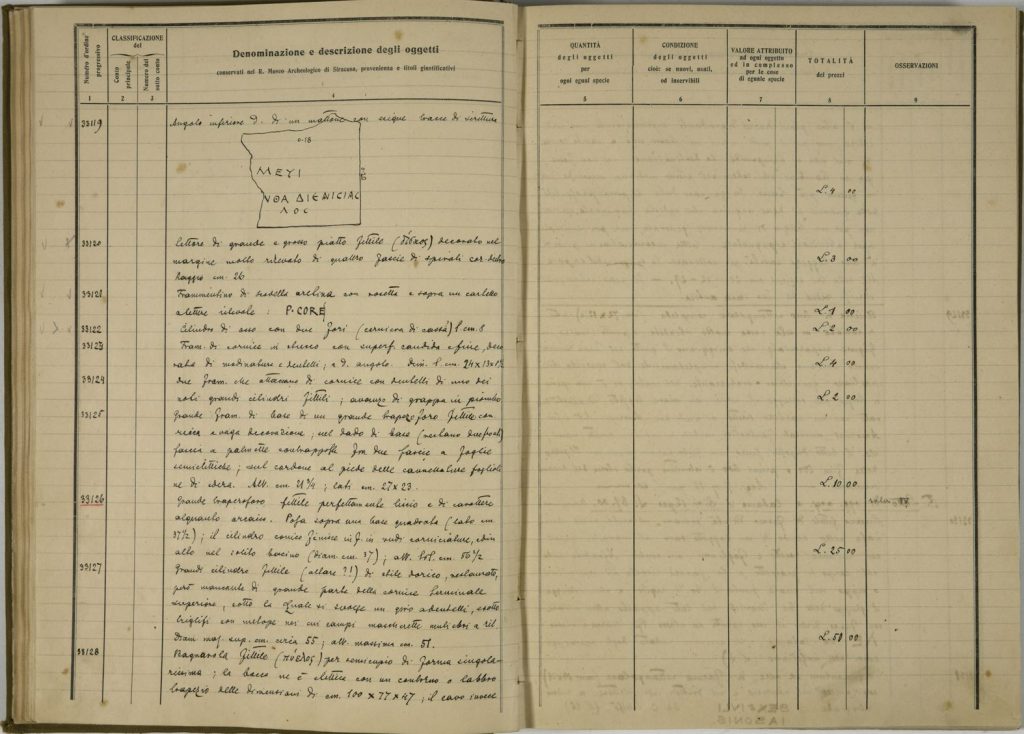 Numero d'ordine progressivo
CLASSIFICAZIONE
del
Conto principale
Numero del sotto conto
Denominazione e descrizione degli oggetti
conservati nel R. Museo Archeologico di Siracusa, provenienza e titoli giustificativi
QUANTITÀ
degli oggetti
per
ogni egual specie
CONDIZIONE
degli oggetti
cioè: se nuovi, usati,
od inservibili
VALORE ATTRIBUITO
ad ogni oggetto
od in complesso
per le cose
di eguale specie
TOTALITÀ
dei prezzi
OSSERVAZIONI
1 2 3 4 5 6 7 8 9
33119 Angolo inferiore d. di un mattone con cinque tracce di scrittura
0.18
ΜΕΥΙ
ΝΘΑ ΔΙΕΝΙCΙΑC
ΛΟC
L. 4 00
33120 di grande e grosso piatto fittile decorato nel
margine molto rilevato di quattro fascie di spirali
Raggio cm. 26
L. 3 00
33121 Frammentino di scodella aretina con rosetta e sopra un cartello
a lettere rilevate : P. CORE
L. 1 00
33122 Cilindro di osso con due fori (cerniera di cassa) l. cm. 8
L. 2 00
33123 Fram. di cornice in stucco con superf. candida e fine,
di modinature e dentelli; a d. angolo. dim. l. cm. 24 x 13 x
L. 4 00
33124 due fram. che attaccano di cornice con dentelli di uno dei
noti grandi cilindri fittili; avanzo di grappa in piombo
L. 2 00
33125 Grande fram. di base di un grande trapezoforo fittile con
ricca e vaga decorazione; nel dado di base
fascia a palmette contrapposte fra due fascie a foglie
; sul cordone al piede delle cannellature
di edera. Alt. cm. 21 1/4; lati cm. 27 x 23.
L. 10 00
33126 Grande trapezoforo fittile perfettamente liscio e di carattere
alquanto arcaico. Posa sopra una base quadrata (lato cm.
37 1/2); il cilindro conico finisce in f. in vudi corniciature, ed in
alto nel solito bacino (diam. cm. 37); alt. tot. cm. 56 1/2
L. 25 00
33127 Grande cilindro fittile (altare?!) di stile dorico, restaurato,
però mancante di grande parte della cornice terminale
superiore, sotto la quale si svolge un giro a dentelli, e sotto
triglifi con metope nei cui campi mascherette muliebri a ril.
Diam. mag. sup. cm. circa 55; alt. massima cm. 51.
L. 50 00
33128 Bagnarola fittile (πύελος) per semicupio di forma singola-
rissima; la bocca ne è elittica con un contorno o labbro
trapezio delle dimensioni di cm. 100 x 77 x 47; il cavo invece